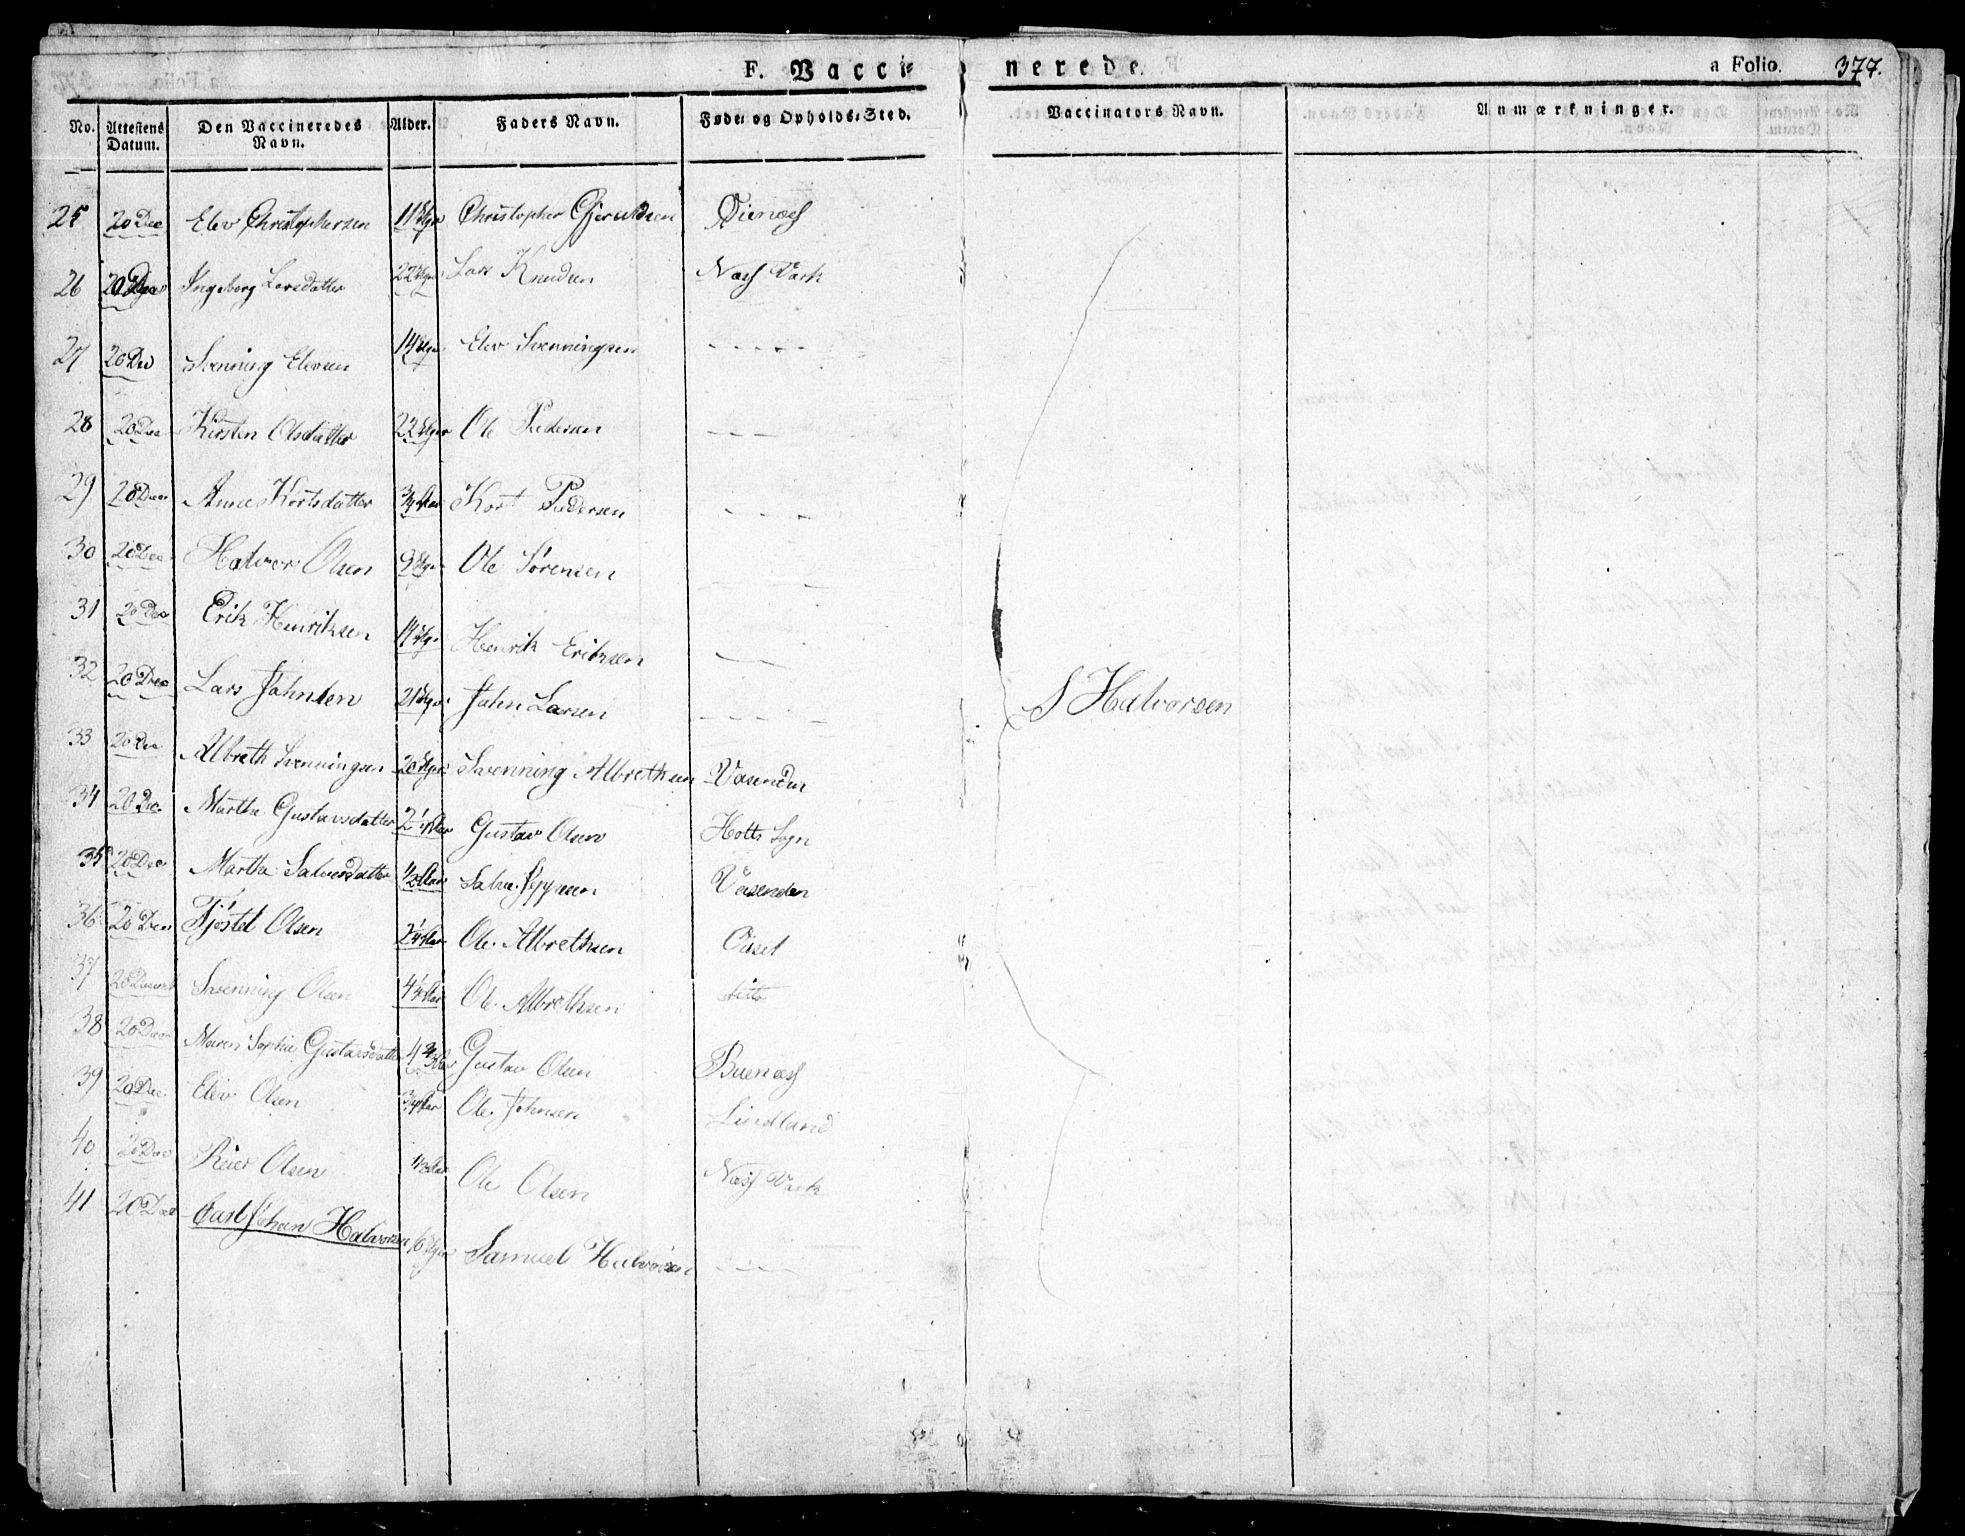 F. Vaccinerede. a Folio. 377.
No. Attestens Datum. Den Vaccineredes Navn. Alder. Faders Navn. Føde- og Opholds-Sted. Vaccinators Navn. Anmærkninger.
25 20 Dec Elev Christophersen 11 Christopher
26 20 Ingeborg Larsdatter 22 Lars Knudsen Næss Værk
27 20 Dec Svenning Elevsen 14 Elev Svenningsen - - - -
28 20 Dec Kirsten Olsdatter 22 Uger Ole Pedersen - - - -
29 20 Dec Anne Kortsdatter 3/4 Aar Kort Pedersen - - - -
30 20 Dec Halvor Olsen 9 Ole Sörensen - - - -
31 20 Dec Erik Henriksen 14 Henrik Eriksen - - - -
32 20 Dec Lars Jahnsen 21 Uger Jahn Larsen - - - - S Halvorsen
33 20 Dec Albreth Svenningsen 20 Uger Svenning Albrethsen Vasenden
34 20 Dec Martha Gustavsdatter 2 Gustav Olsen Holts Sogn
35 20 Dec Martha 1/2 Aar Jeppesen Vasenden
36 20 Dec Tjöstel Olsen Ole Albrethsen
37 20 Svenning Olsen 4 Ole Albrethsen ditto
38 20 Dec Maren Sophie Gustavsdatter 4 Gustav Olsen
39 20 Dec Elev Olsen 3/4 Aar Ole Johnsen Lindland
40 20 Dec Reier Olsen Ole Olsen Næss Værk
41 20 Dec Carl Johan Halvorsen 16 Samuel Halvorsen - - - -